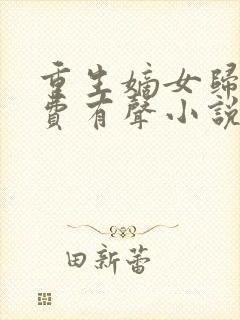 重生嫡女歸
費有聲小說
田新蕾